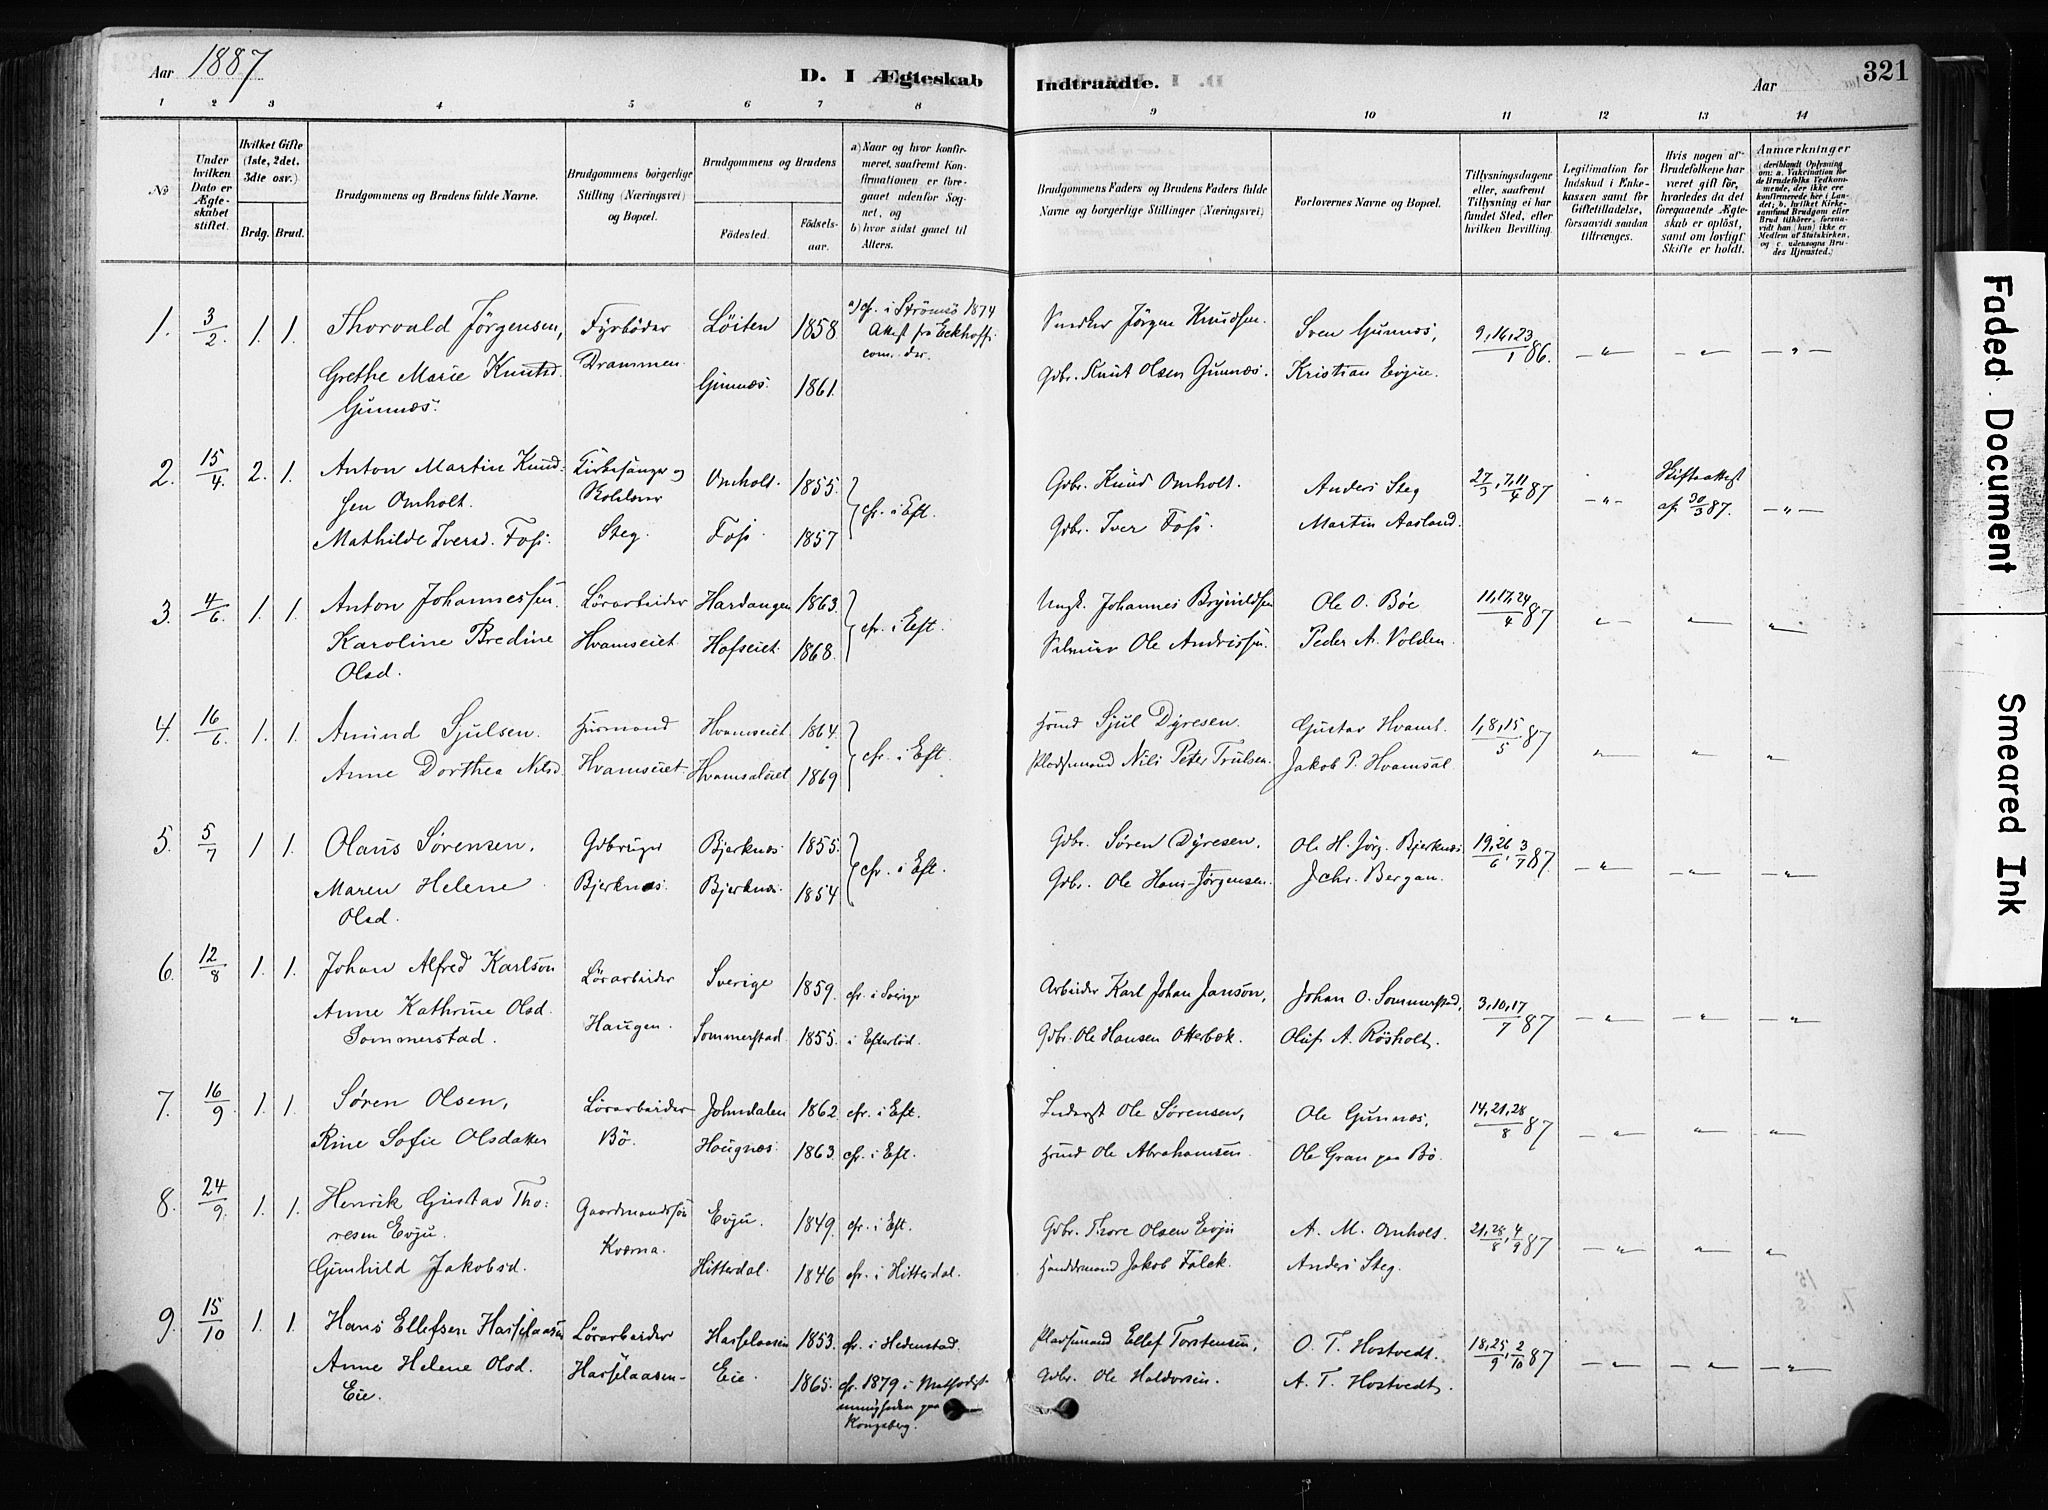 Aar 1887
D. I Ægteskab
Indtraadte.
Aar
321
1 2 3 4 5 6 7 8 9 10 11 12 13 14
No
Under hvilken Dato er Ægteskabet stiftet.
Hvilket Gifte (1ste, 2det, 3die osv.)
Brdg. Brud.
Brudgommens og Brudens fulde Navne.
Brudgommens borgerlige Stilling (Næringsvei) og Bopæl.
Brudgommens og Brudens
Fødested.
Fødselsaar.
a) Naar og hvor konfirmeret, saafremt Konfirmationen er foregaaet udenfor Sognet, og
b) hvor sidst gaaet til Alters.
Brudgommens Faders og Brudens Faders fulde Navne og borgerlige Stillinger (Næringsvei)
Forlovernes Navne og Bopæl.
Tillysningsdagene eller, saafremt Tillysning ei har fundet Sted, efter hvilken Bevilling.
Legitimation for Indskud i Enkekassen samt for Giftetilladelse, forsaavidt saadan tiltrænges.
Hvis nogen af Brudefolkene har været gift før, hvorledes da det foregaaende Ægteskab er opløst, samt om lovligt Skifte er holdt.
Anmærkninger
(deriblandt Oplysning om: a. Vakcination for de Brudefolks Vedkommende, der ikke ere konfirmerede her i Landet; b. hvilket Kirkesamfund Brudgom eller Brud tilhører, forsaavidt han (hun) ikke er Medlem af Statskirken, og c. udensogns Brudes Hjemsted.)
1. 3/2. 1. 1. Thorvald Jörgensen, Fyrböder Löiten 1858 a) cfr. i Strömsö 1874 Snedker Jörgen Knudsen. Sven Gunnæs, 9,16,23/1 86. —„— —„— —„—
Attest fra Eckhoff
Grethe Marie Knutsd. Drammen. Gunnæs. 1861. Gdbr. Knut Olsen Gunnæs. Kristian Evjue.
Gunnæs.
2. 15/4. 2. 1. Anton Martin Knud- Kirkesanger og Omholt. 1855. cfr. i Eft. Gdbr. Knud Omholt. Anders Steg 27/3, 7,11/4 87 —„— Skifteattest
sen Omholt. af 30/3 87. —„—
Mathilde Iversd. Foss. Steg. Foss. 1857 Gdbr. Iver Foss. Martin Aasland.
3. 4/6. 1. 1. Anton Johannessen. Lösarbeider Hardangen 1863. cfr. i Eft. Ungk. Johannes Brynildsen Ole O. Böe 11,17,24/4 87 „ „ „
Karoline Bredine Hvamseiet. Hofseiet. 1868. Ole Andrissen. Peder A. Volden.
Olsd.
4. 16/6. 1. 1. Amund Sjulsen. Husmand Hvamseiet. 1864. cfr. i Eft. Hsmd Sjul Dyresen. Gustav Hvams. 1,8,15/5 87 „ „ „
Anne Dorthea Nilsd. Hvamseiet. 1869 Pladsmand Nils Peter Trulsen. Jakob P. Hvamsal.
5. 5/7 1 1. Olaus Sørensen, Gdbruger Bjerknæs. 1855. cfr. i Eft. Gdbr. Søren Dyresen, Ole H. Jörg. Bjerknæs 19,26/6, 3/7 87. —„— —„— —„—
Maren Helene Bjerknæs. Bjerknæs. 1854 Gdbr. Ole Hans Jörgensen. J. Chr. Bergan.
Olsd.
6. 12/8 1. 1. Johan Alfred Karlson Lösarbeider Sverige 1859. cfr. i Sverige Arbeider Karl Johan Janson, Johan O. Sommerstad, 3,10,17/7 87 —„— —„— —„—
Anne Kathrine Olsd. Haugen. Sommerstad. 1855. i Efterlöd. Gdbr. Ole Hansen Otterbæk. Oluf A. Rösholt.
Sommerstad.
7. 16/9. 1. 1. Søren Olsen, Lösarbeider Johndalen 1862 cfr. i Eft. Inderst Ole Sørensen, Ole Gunnæs. 14,21,28/8 87 —„— —„— „
Rine Sofie Olsdatter Bö. Haugnæs. 1863. cfr. i Eft. Hsmd Ole Abrahamsen. Ole Gran paa Bö.
8. 24/9. 1. 1. Henrik Gustav Tho- Gaardmandssön Evju. 1849. cfr. i Eft. Gdbr. Thore Olsen Evju A. M. Omholt. 21,28/8, 4/9 87 —„— —„— „
resen Evju. Kværna.
Gunhild Jakobsd. Hitterdal. 1846 cfr. i Hitterdal. Jakob Falck. Anders Steg.
9. 15/10 1. 1. Hans Ellefsen Hasselaasen Lösarbeider Hasselaasen 1853. cfr. i Hedenstad. Pladsmand Ellef Torstensen, O. T. Hostvedt. 18,25/9, 2/10 87 —„— —„— —„—
Anne Helene Olsd. Hasselaasen- Eie. 1865. cfr. 1879 i Methodist- Gdbr. Ole Haldorsen. A. T. Hostvedt.
Eie. menigheden paa
Kongsberg.
Faded Document
Smeared Ink